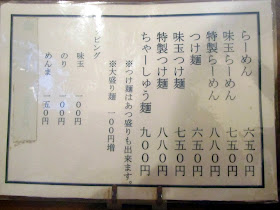 らーめん　六五〇円
味玉らーめん　七五〇円
特製らーめん　八八〇円
つけ麺　六五〇円
味玉つけ麺　七五〇円
特製つけ麺　八八〇円
ちゃーしゅう麺　九〇〇円
※つけ麺はあつ盛りも出来ます。
※大盛り麺　一〇〇円増
ピング
味玉　一〇〇円
のり　一〇〇円
めんま　一五〇円